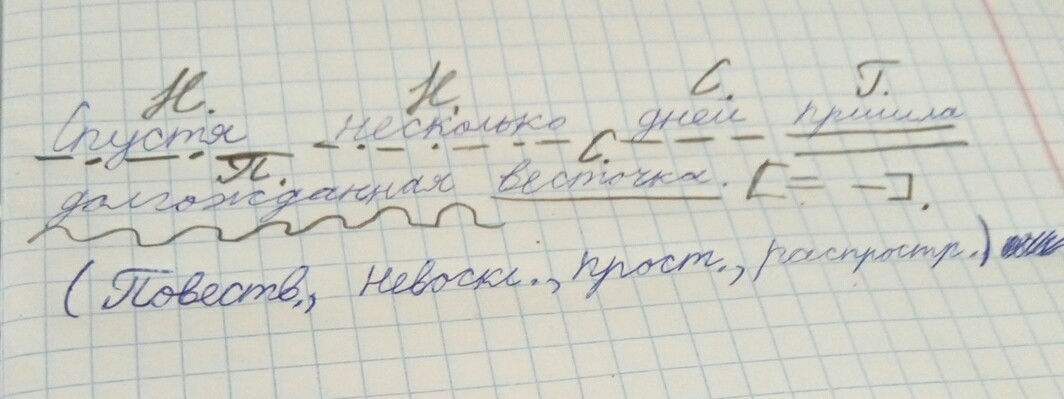 Н. Н. С. Г.
Спустя несколько дней пришла
П. С.
долгожданная весточка. [= –].
(Повеств., невоскл., прост., распростр.)